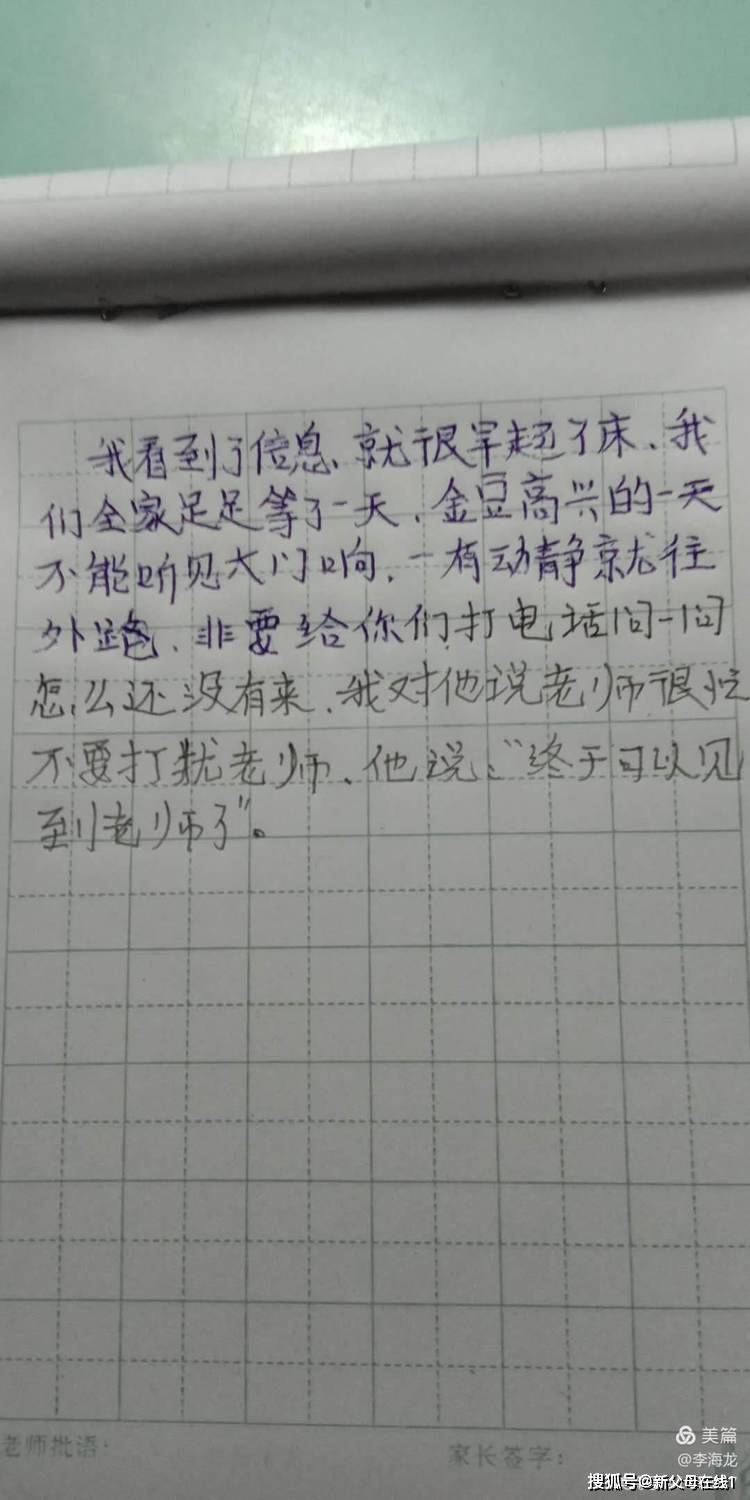 我看到了信息、就很早起了床、我
们全家足足等了一天、金豆高兴的一天
不能听见大门响、一有动静就往
外跑、非要给你们打电话问一问
怎么还没有来、我对他说老师很忙
不要打扰老师、他说、“终于可以见
到老师了”。
老师批语:
家长签字:
美篇
@李海龙
搜狐号@新父母在线1